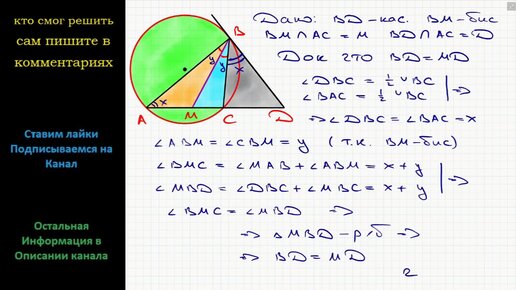 кто смог решить
сам пишите в
комментариях
Ставим лайки
Подписываемся на
Канал
Остальная
Информация в
Описании канала
B
y
y
x
x
A
M
C
D
Дано: BD – кас. BM – бис
BM ∩ AC = M BD ∩ AC = D
Док что BD = MD
∠DBC = ½ ◡BC
∠BAC = ½ ◡BC | ⇒
⇒ ∠DBC = ∠BAC = x
∠ABM = ∠CBM = y (т.к. BM – бис)
∠BMC = ∠MAB + ∠ABM = x + y
∠MBD = ∠DBC + ∠MBC = x + y | ⇒
∠BMC = ∠MBD ⇒
⇒ △MBD – р/б ⇒
⇒ BD = MD